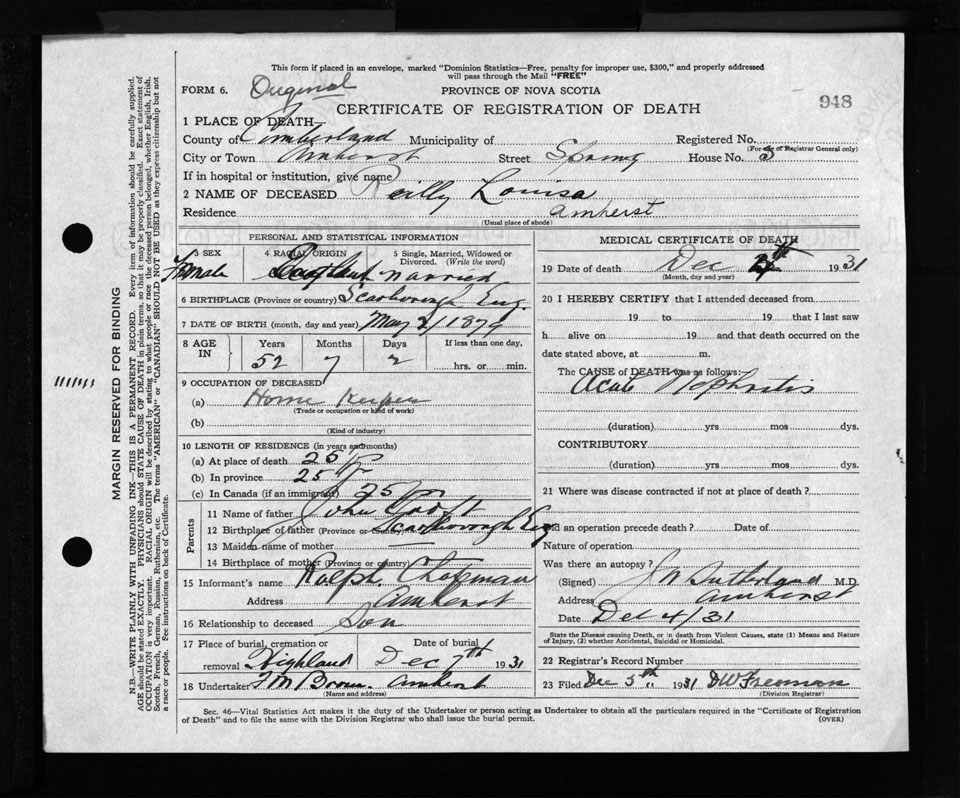 This form if placed in an envelope, marked "Dominion Statistics—Free, penalty for improper use, $300," and properly addressed
will pass through the Mail "FREE"
FORM 6. Original PROVINCE OF NOVA SCOTIA
CERTIFICATE OF REGISTRATION OF DEATH 948
1 PLACE OF DEATH—
County of Cumberland Municipality of Registered No.
(For use of Registrar General only)
City or Town Amherst Street Spring House No. 3
If in hospital or institution, give name
2 NAME OF DECEASED Reilly Louisa
Residence Amherst
(Usual place of abode)
PERSONAL AND STATISTICAL INFORMATION
3 SEX 4 RACIAL ORIGIN 5 Single, Married, Widowed or Divorced. (Write the word)
Female Married
6 BIRTHPLACE (Province or country) Scarborough Eng.
7 DATE OF BIRTH (month, day and year) May 2/1879
8 AGE IN Years Months Days If less than one day,
52 7 2 hrs. or min.
9 OCCUPATION OF DECEASED
(a) Home Keeper
(Trade or occupation or kind of work)
(b)
(Kind of industry)
10 LENGTH OF RESIDENCE (in years and months)
(a) At place of death 25
(b) In province 25
(c) In Canada (if an immigrant) 25
Parents
11 Name of father John
12 Birthplace of father (Province or country) Scarborough Eng
13 Maiden name of mother
14 Birthplace of mother (Province or country)
15 Informant's name Ralph Chapman
Address Amherst
16 Relationship to deceased Son
17 Place of burial, cremation or removal Highland Date of burial Dec 7th 1931
18 Undertaker F M Brown Amherst
(Name and address)
MEDICAL CERTIFICATE OF DEATH
19 Date of death Dec 4th 1931
(Month, day and year)
20 I HEREBY CERTIFY that I attended deceased from
19 to 19 that I last saw
h alive on 19 and that death occurred on the
date stated above, at m.
The CAUSE of DEATH was as follows:
Acute Nephritis
(duration) yrs mos dys.
CONTRIBUTORY
(duration) yrs. mos. dys.
21 Where was disease contracted if not at place of death?
Did an operation precede death? Date of
Nature of operation
Was there an autopsy?
(Signed) J N Sutherland M.D.
Address Amherst
Date Dec 4/31
State the Disease causing Death, or in death from Violent Causes, state (1) Means and Nature of Injury, (2) whether Accidental, Suicidal or Homicidal.
22 Registrar's Record Number
23 Filed Dec 5th 1931 D W Freeman
(Division Registrar)
Sec. 46—Vital Statistics Act makes it the duty of the Undertaker or person acting as Undertaker to obtain all the particulars required in the "Certificate of Registration
of Death" and to file the same with the Division Registrar who shall issue the burial permit. (OVER)
MARGIN RESERVED FOR BINDING
N.B.—WRITE PLAINLY WITH UNFADING INK—THIS IS A PERMANENT RECORD. Every item of information should be carefully supplied.
AGE should be stated EXACTLY. PHYSICIANS should STATE CAUSE OF DEATH in plain terms, so that it may be properly classified. Exact statement of
OCCUPATION is very important. RACIAL ORIGIN will be described by stating to what people or race the deceased person belonged, whether English, Irish,
Scotch, French, German, Russian, Ruthenian, etc. The terms "AMERICAN" or "CANADIAN" SHOULD NOT BE USED as they express citizenship but not
a race or people. See instructions on back of Certificate.